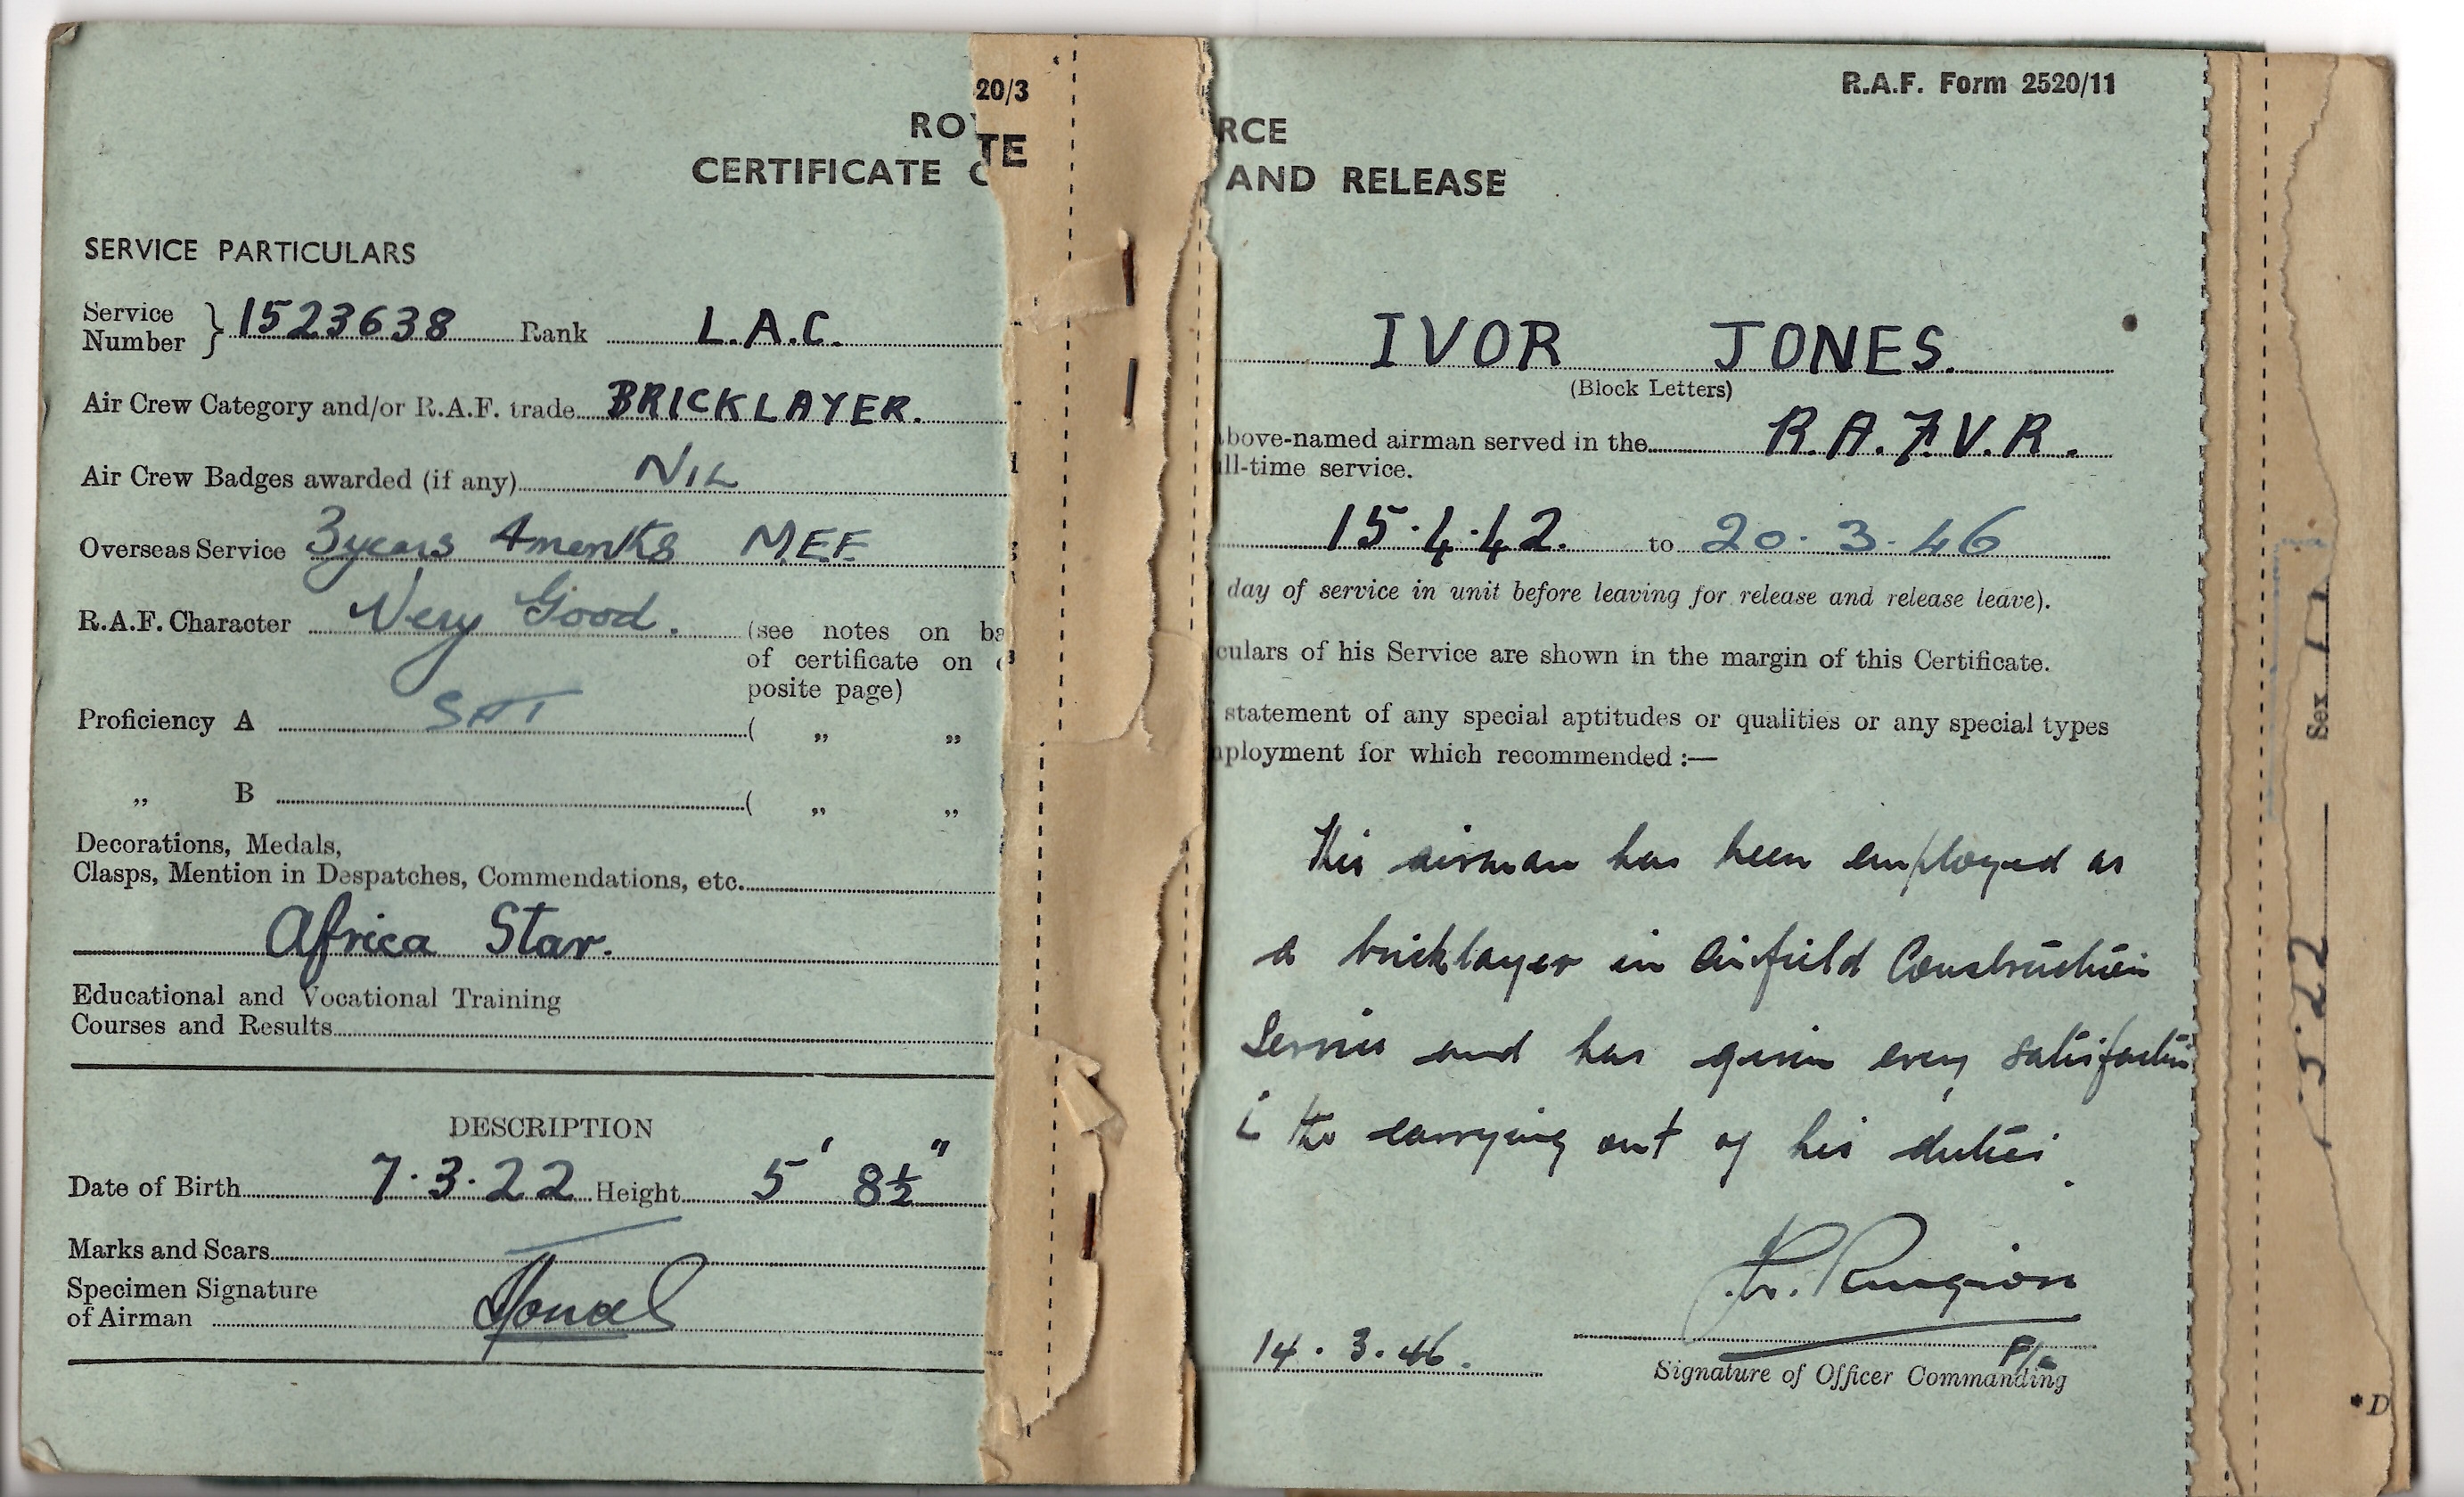 20/3
TE
RO
CERTIFICATE
SERVICE PARTICULARS
Service Number } 1523638 Rank L.A.C.
Air Crew Category and/or R.A.F. trade BRICKLAYER.
Air Crew Badges awarded (if any) NIL
Overseas Service 3years 4months M.E.F.
R.A.F. Character Very Good. (see notes on ba
of certificate on
posite page)
Proficiency A SAT ( „ „
„ B ( „ „
Decorations, Medals,
Clasps, Mention in Despatches, Commendations, etc.
Africa Star.
Educational and Vocational Training
Courses and Results
DESCRIPTION
Date of Birth 7.3.22 Height 5' 8½"
Marks and Scars —
Specimen Signature
of Airman
R.A.F. Form 2520/11
RCE
AND RELEASE
IVOR JONES.
(Block Letters)
bove-named airman served in the R.A.F.V.R.
ll-time service.
15.4.42. to 20.3.46
day of service in unit before leaving for release and release leave).
culars of his Service are shown in the margin of this Certificate.
statement of any special aptitudes or qualities or any special types
ployment for which recommended :—
This airman has been employed as
a bricklayer in Airfield Construction
Service and has given every satisfaction
in the carrying out of his duties.
14.3.46.
Signature of Officer Commanding
Sex
3.22
*D